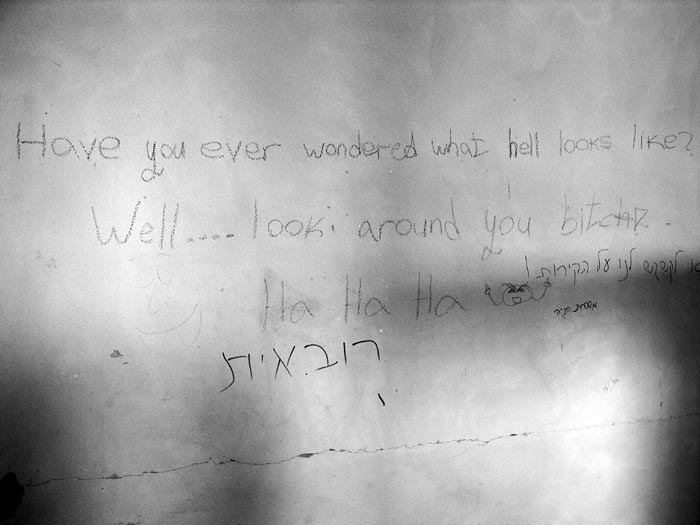 Have you ever wondered what hell looks like?
Well.... look around you bitch.
לקשקש לנו על הקירות!
Ha Ha Ha
רובאית